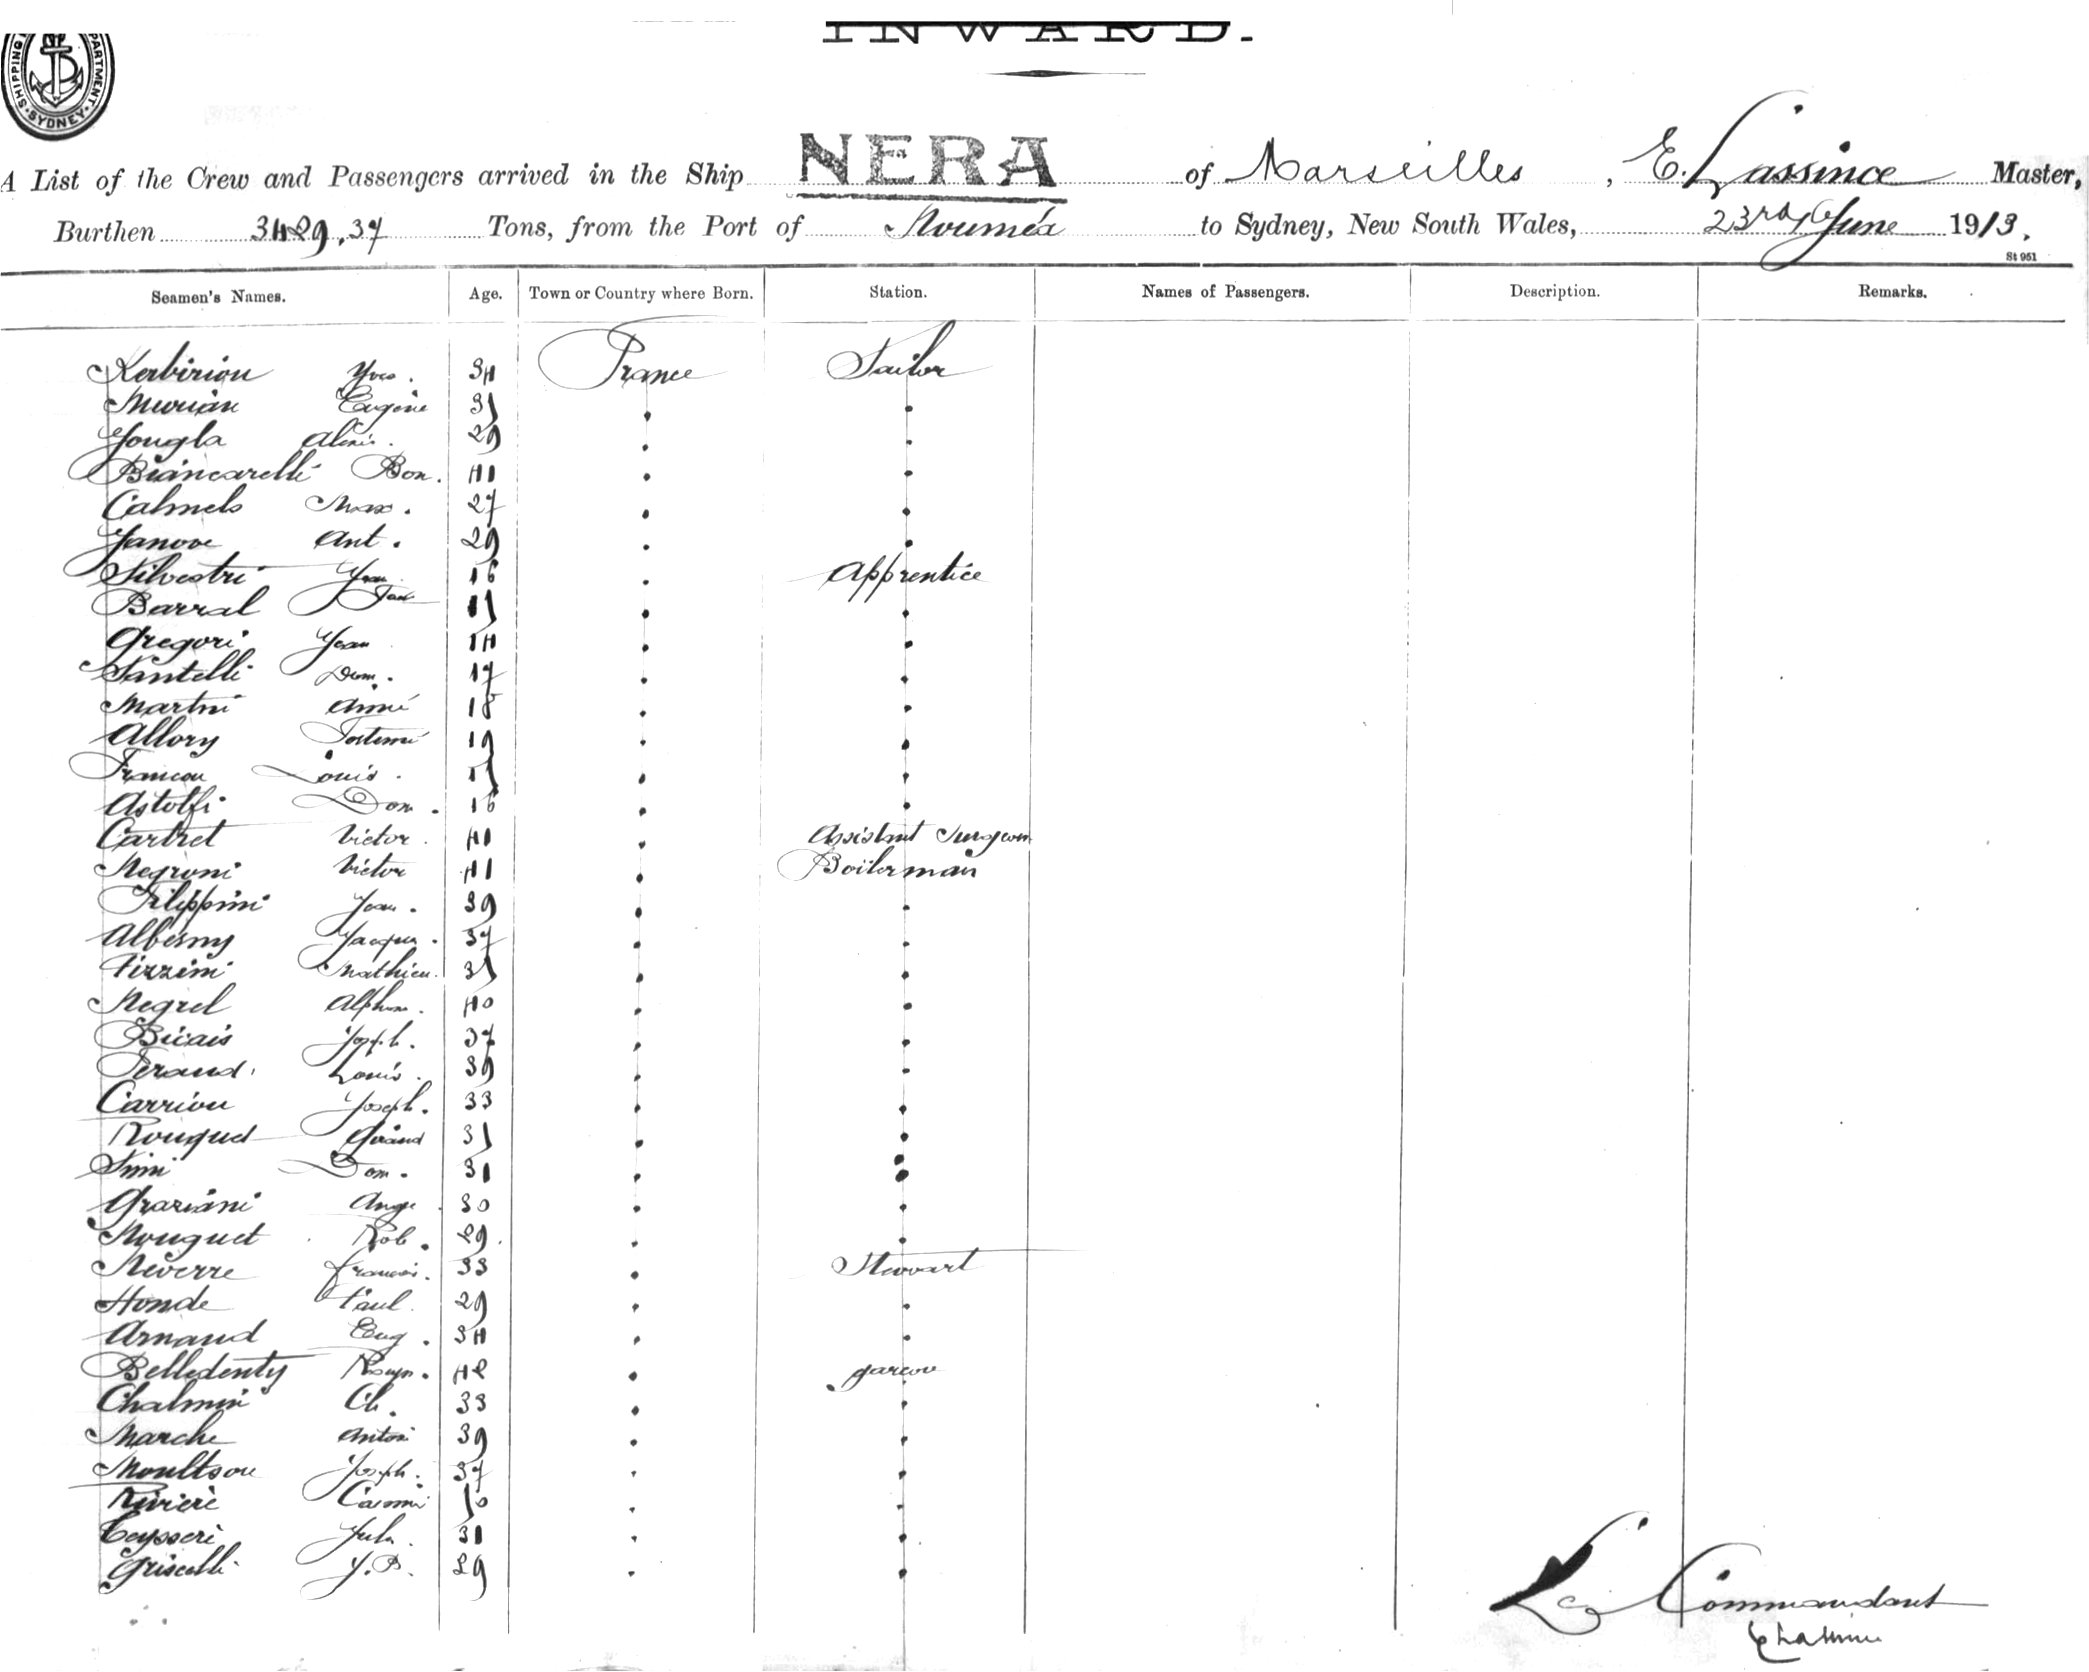 INWARD.
SHIPPING DEPARTMENT SYDNEY
A List of the Crew and Passengers arrived in the Ship NERA of Marseilles, E. Lassince Master,
Burthen 3429,37 Tons, from the Port of Nouméa to Sydney, New South Wales, 23rd June 1913.
St 951
Seamen's Names. Age. Town or Country where Born. Station. Names of Passengers. Description. Remarks.
Kerbiriou Yves. 34 France Sailor
Eugène 35
Yougla Alexis. 29
Biancarelli Bon. 41
Calmels Max. 27
Janove Ant. 29
Silvestri Jean 16 Apprentice
Barral 15
Gregori Jean 14
Santelli Dom. 17
Martini Aimé 18
Allory 19
Francou Louis. 15
Astolfi Dom. 16
Cartret Victor. 41 Assistant Surgeon
Negroni Victor 41 Boilerman
Filippini Jean. 39
Albesny Jacques. 37
Pizzini Mathieu. 35
Negrel Alphon. 40
Bicais Joseph. 37
Feraud. Louis. 39
Carriou Joseph. 33
Rouquet 35
Simi Dom. 31
Graziani Ange 30
Nouguet Rob. 29
Neverre François. 33 Stewart
Honde Paul. 29
Arnaud Eug. 34
Belledenty 42 garcon
Chalmin Ch. 33
Marche Antoi 39
Moultson Joseph. 37
Riviere Casimi 50
Teysseri Jules. 31
Griscelli J.B. 29
Le Commandant